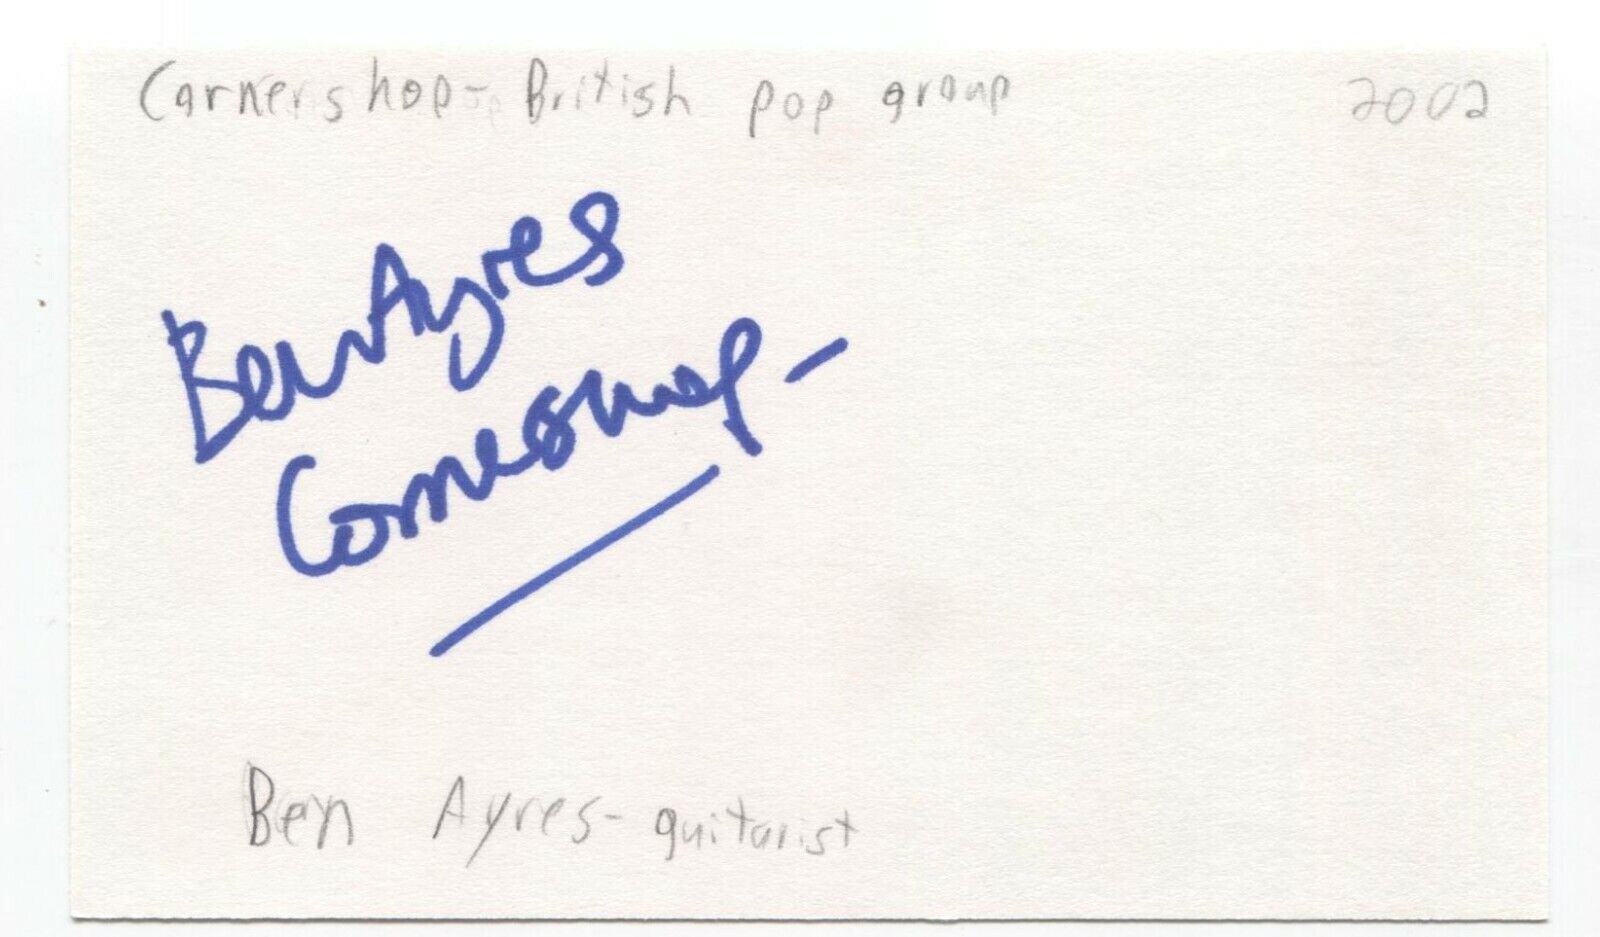 Cornershop - British pop group 2002
Ben Ayres
Cornershop -
Ben Ayres - guitarist